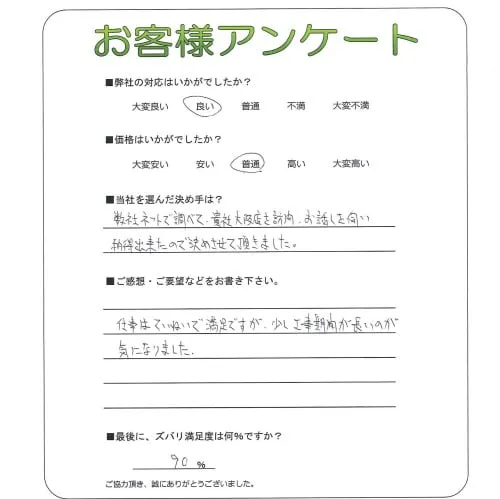 お客様アンケート
■弊社の対応はいかがでしたか？
大変良い 良い 普通 不満 大変不満
■価格はいかがでしたか？
大変安い 安い 普通 高い 大変高い
■当社を選んだ決め手は？
弊社ネットで調べて、貴社大阪店を訪問、お話しを伺い
納得出来たので決めさせて頂きました。
■ご感想・ご要望などをお書き下さい。
仕事はていねいで満足ですが、少し工事期間が長いのが
気になりました。
■最後に、ズバリ満足度は何％ですか？
90 ％
ご協力頂き、誠にありがとうございました。